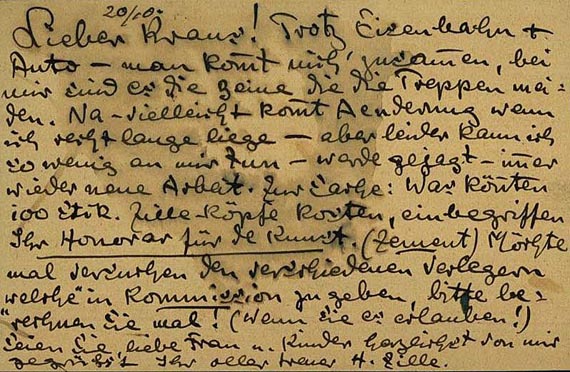 20/10.
Lieber Kraus! Trotz Eisenbahn +
Auto – man kom̄t nich' zusam̄en, bei
mir sind es die Beine die die Treppen mei=
den. Na – vielleicht kom̄t Aenderung wenn
ich recht lange liege – aber leider kann ich
so wenig an mir tun – werde gejagt – im̄er
wieder neue Arbeit. Zur Sache: Was kön̄ten
100 Stck. Zille-Köpfe kosten, einbegriffen
Ihr Honorar für de Kunst. (Zement) Möchte
mal versuchen den verschiedenen Verlegern
welche in Kommission zu geben, bitte be=
rechnen Sie mal! (Wenn Sie es erlauben!)
Seien Sie, liebe Frau u. Kinder herzlichst von mir
gegrüßt Ihr oller treuer H. Zille.